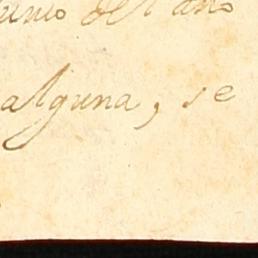 del año
alguna, se